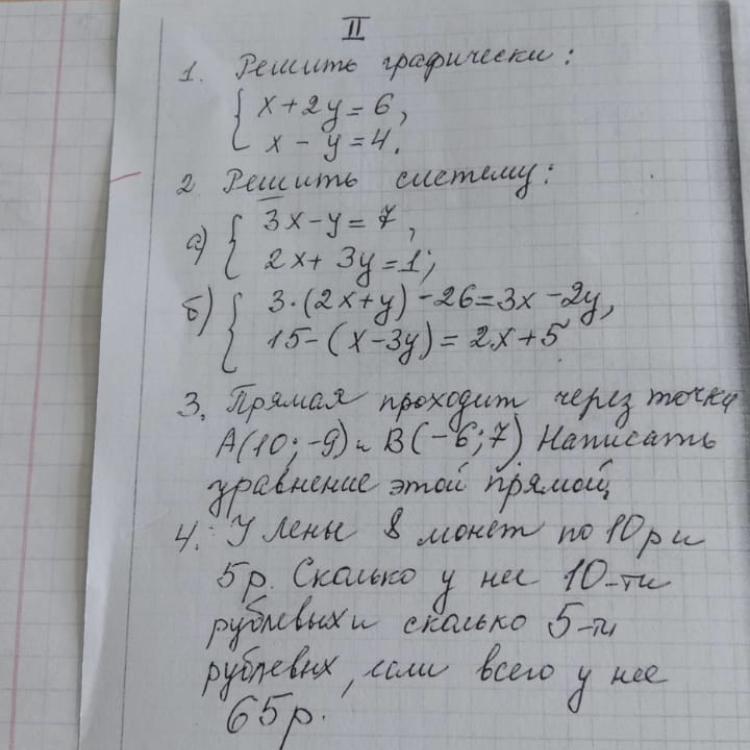 II
1. Решить графически:
{ x+2y=6,
x-y=4.
2 Решить систему:
а) { 3x-y=7,
2x+3y=1;
б) { 3·(2x+y)-26=3x-2y,
15-(x-3y)=2x+5
3. Прямая проходит через точки
A(10;-9) и B(-6;7) Написать
уравнение этой прямой
4. У Лены 8 монет по 10р и
5р. Сколько у нее 10-ти
рублевых и сколько 5-ти
рублевых, если всего у нее
65р.